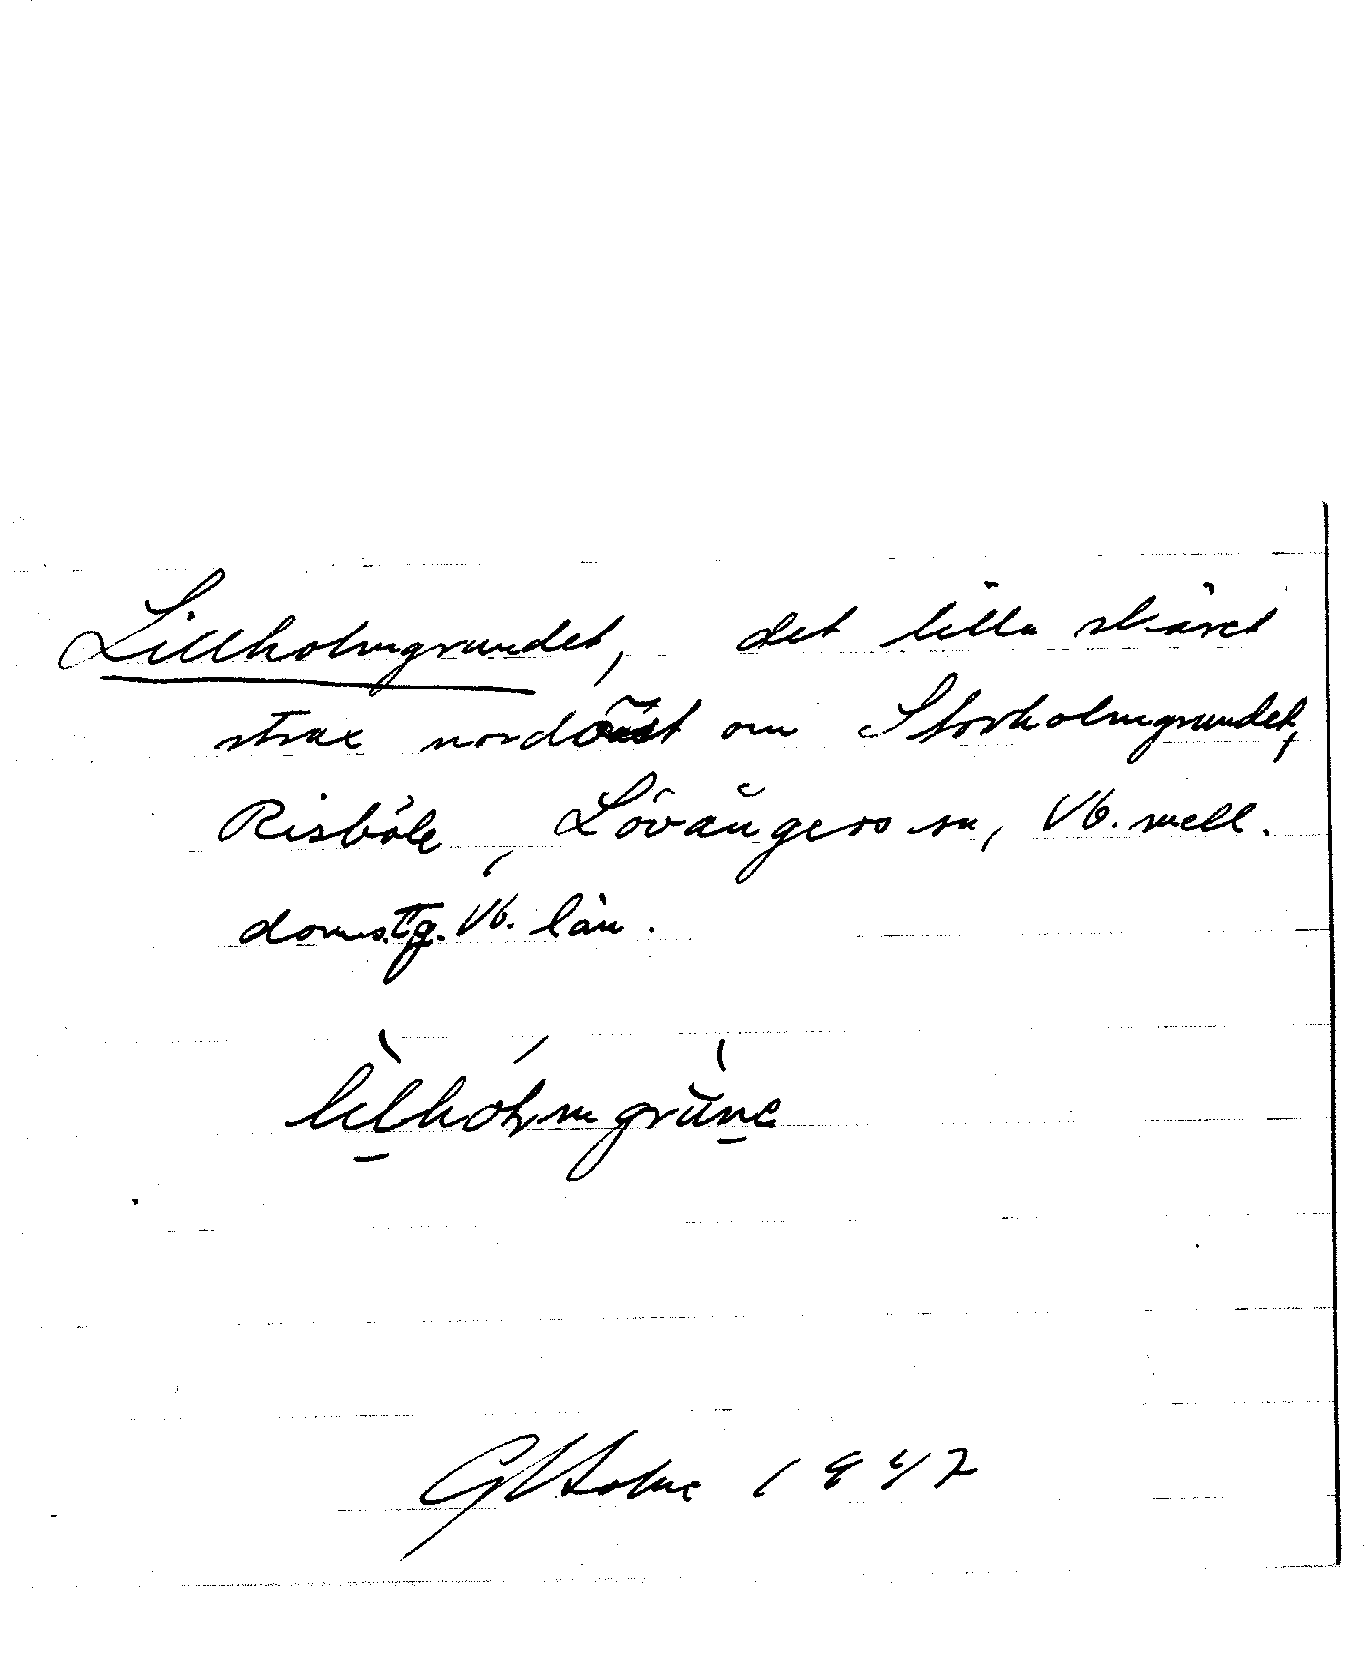 Lillholmgrundet, det lilla skäret
strax nordöst om Storholmgrundet,
Risböle, Lövångers sn, Vb. mell.
doms. Tg. Vb. län.
lilhólmgrŭne
GHolm 1942